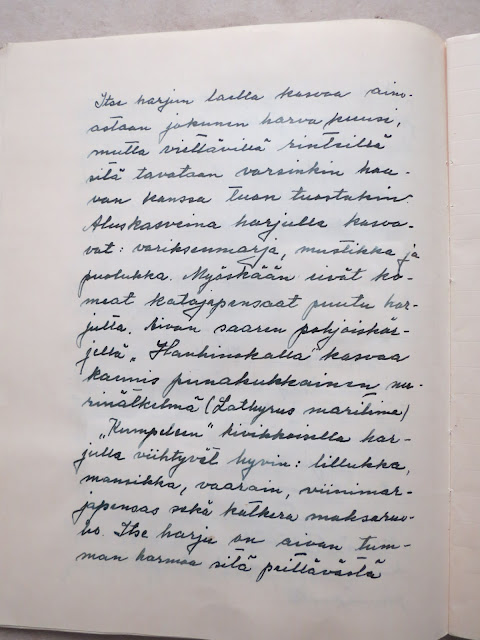 Itse harjun laella kasvaa aino-
astaan jokunen harva kuusi,
mutta viettävillä rinteillä
sitä tavataan varsinkin haa-
van kanssa tuon tuostakin.
Aluskasveina harjulla kasva-
vat: variksenmarja, mustikka ja
puolukka. Myöskään eivät ko-
meat katajapensaat puutu har-
julta. Aivan saaren pohjoiskär-
jellä „Hauhinokalla" kasvaa
kaunis punakukkainen me-
rinätkelmä (Lathyrus maritima)
„Kumpeleen" kivikkoisella har-
julla viihtyvät hyvin: lillukka,
mansikka, vaarain, viinimar-
japensas sekä katkera maksaruo-
ho. Itse harju on aivan tum-
man harmaa sitä peittävästä